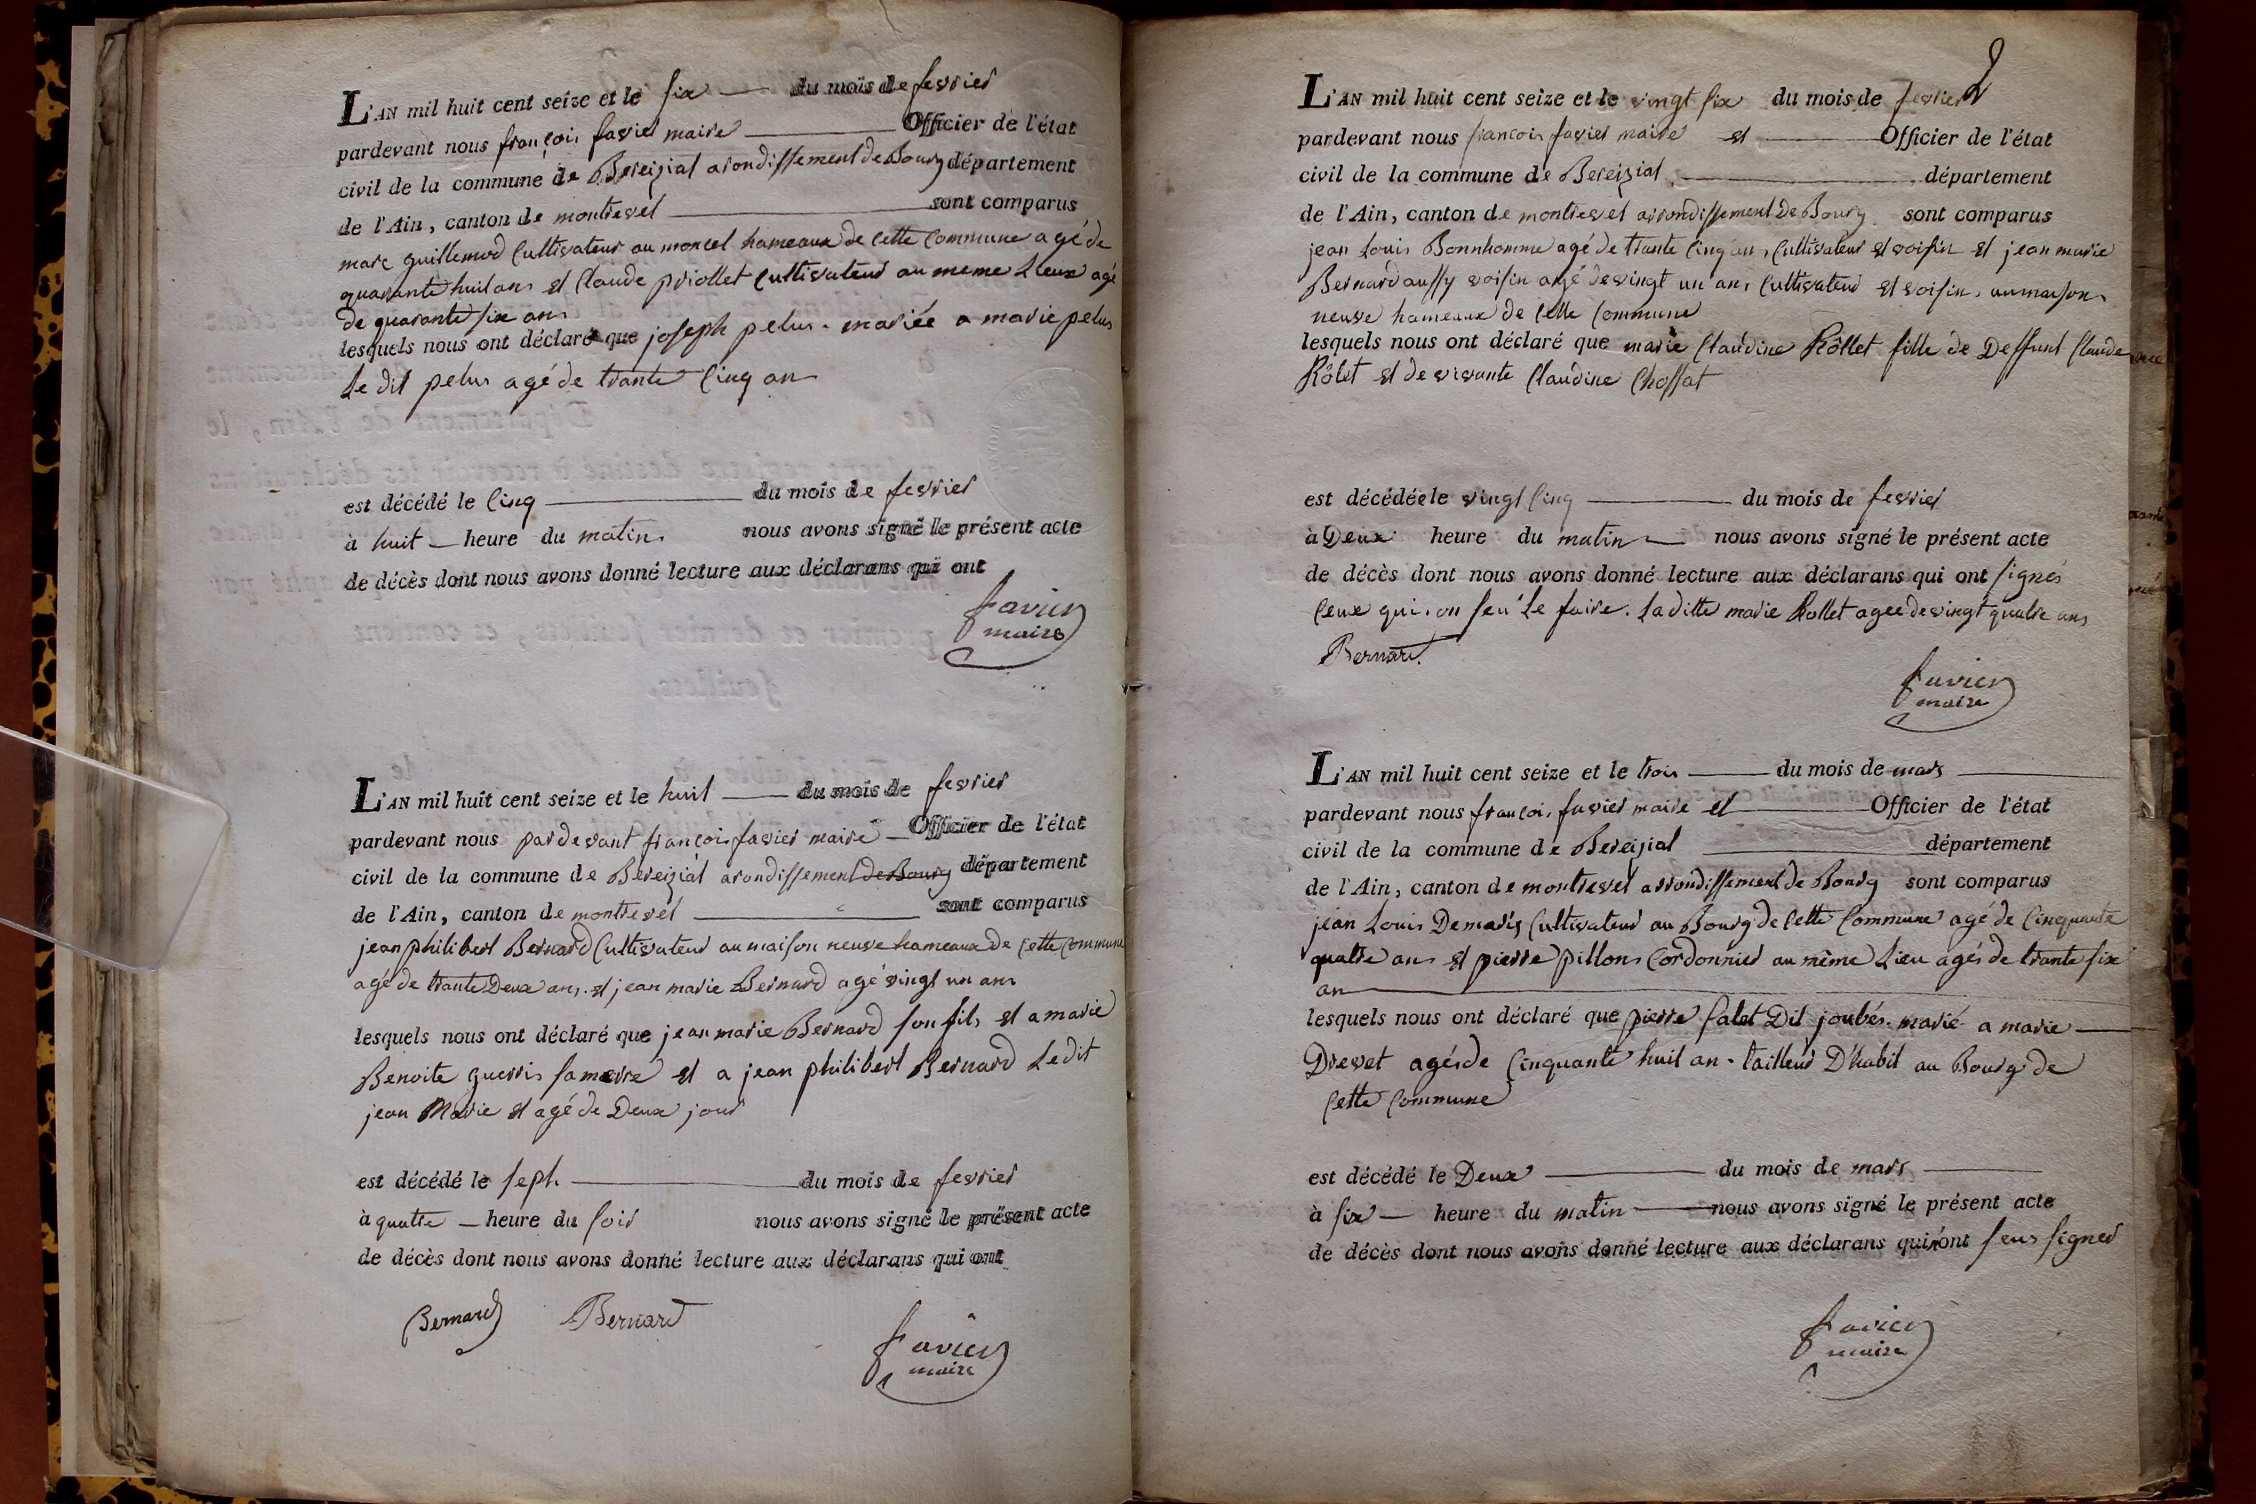 L'AN mil huit cent seize et le six du mois de fevrier
pardevant nous françois favier maire Officier de l'état
civil de la commune de Bereizial arondissement de Bourg département
de l'Ain, canton de montrevel sont comparus
marc guillemod Cultivateur au moncel hameaux de Cette Commune agé de
quarante huit ans et Claude priollet Cultivateur au meme Lieux agé
de quarante six ans
lesquels nous ont déclaré que joseph pelus mariée a marie pelus
Le dit pelus agé de trante Cinq an
est décédé le Cinq du mois de fevrier
à huit heure du matin nous avons signé le présent acte
de décès dont nous avons donné lecture aux déclarans qui ont
favier
maire
L'AN mil huit cent seize et le huit du mois de fevrier
pardevant nous pardevant françois favier maire Officier de l'état
civil de la commune de Bereizial arondissement de Bourg département
de l'Ain, canton de montrevel sont comparus
jean philibert Bernard Cultivateur au maison neuve hameaux de Cette Commune
agé de trante Deux ans et jean marie Bernard agé vingt un ans
lesquels nous ont déclaré que jean marie Bernard son fils et a marie
Benoite guerris sa merre et a jean philibert Bernard Le dit
jean Marie et agé de Deux jour
est décédé le sept du mois de fevrier
à quatre heure du soir nous avons signé le présent acte
de décès dont nous avons donné lecture aux déclarans qui ont
Bernard Bernard
favier
maire
2
L'AN mil huit cent seize et le vingt six du mois de fevrier
pardevant nous francois favier maire et Officier de l'état
civil de la commune de Bereizial département
de l'Ain, canton de montrevel arrondissement De Bourg sont comparus
jean Louis Bonnhomme agé de trante Cinq ans, Cultivateur et voisin et jean marie
Bernard aussy voisin agé de vingt un ans Cultivateur et voisin, au maison
neuve hameaux de Cette Commune
lesquels nous ont déclaré que marie Claudine Rôllet fille de Deffunt Claude
Rôlet et de vivante Claudine Chossat
est décédée le vingt Cinq du mois de fevrier
à Deux heure du matin nous avons signé le présent acte
de décès dont nous avons donné lecture aux déclarans qui ont signés
Ceux qui on seu Le faire. La ditte marie Rollet agee de vingt quatre ans
Bernard.
favier
maire
L'AN mil huit cent seize et le trois du mois de mars
pardevant nous françois favier maire et Officier de l'état
civil de la commune de Bereizial département
de l'Ain, canton de montrevel arrondissement de Bourg sont comparus
jean Louis Demaris Cultivateur au Bourg de Cette Commune agé de Cinquante
quatre ans et pierre pillon Cordonnier au même Lieu agés de trante six
an
lesquels nous ont déclaré que pierre falet Dit joubés marié a marie
Drevet agés de Cinquante huit an tailleur D'habit au Bourg de
Cette Commune
est décédé le Deux du mois de mars
à six heure du matin nous avons signé le présent acte
de décès dont nous avons donné lecture aux déclarans qui n'ont seus signer
favier
maire